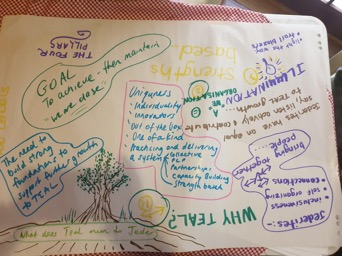 THE FOUR
PILLARS
GOAL
To achieve - then maintain
we are dose...
The need to
build strong
foundations to
support further growth
to TEAL
Uniquness
- Individuality
- Innovators
- Out of the box
- One of a kind
- Practicing and delivering
a system
Collective
Partnerships
Community Building
Strength based
WHY TEAL?
What does Teal mean to Jede
strengths
based
light the way
trail blazers
ILLUMINATION
"WE" A
ORGANISATION
Jederites have an equal
say, listen actively & contribute
to TEAL growth...
Jederites:-
inclusiveness
self organizing
connections
bringing
people
together